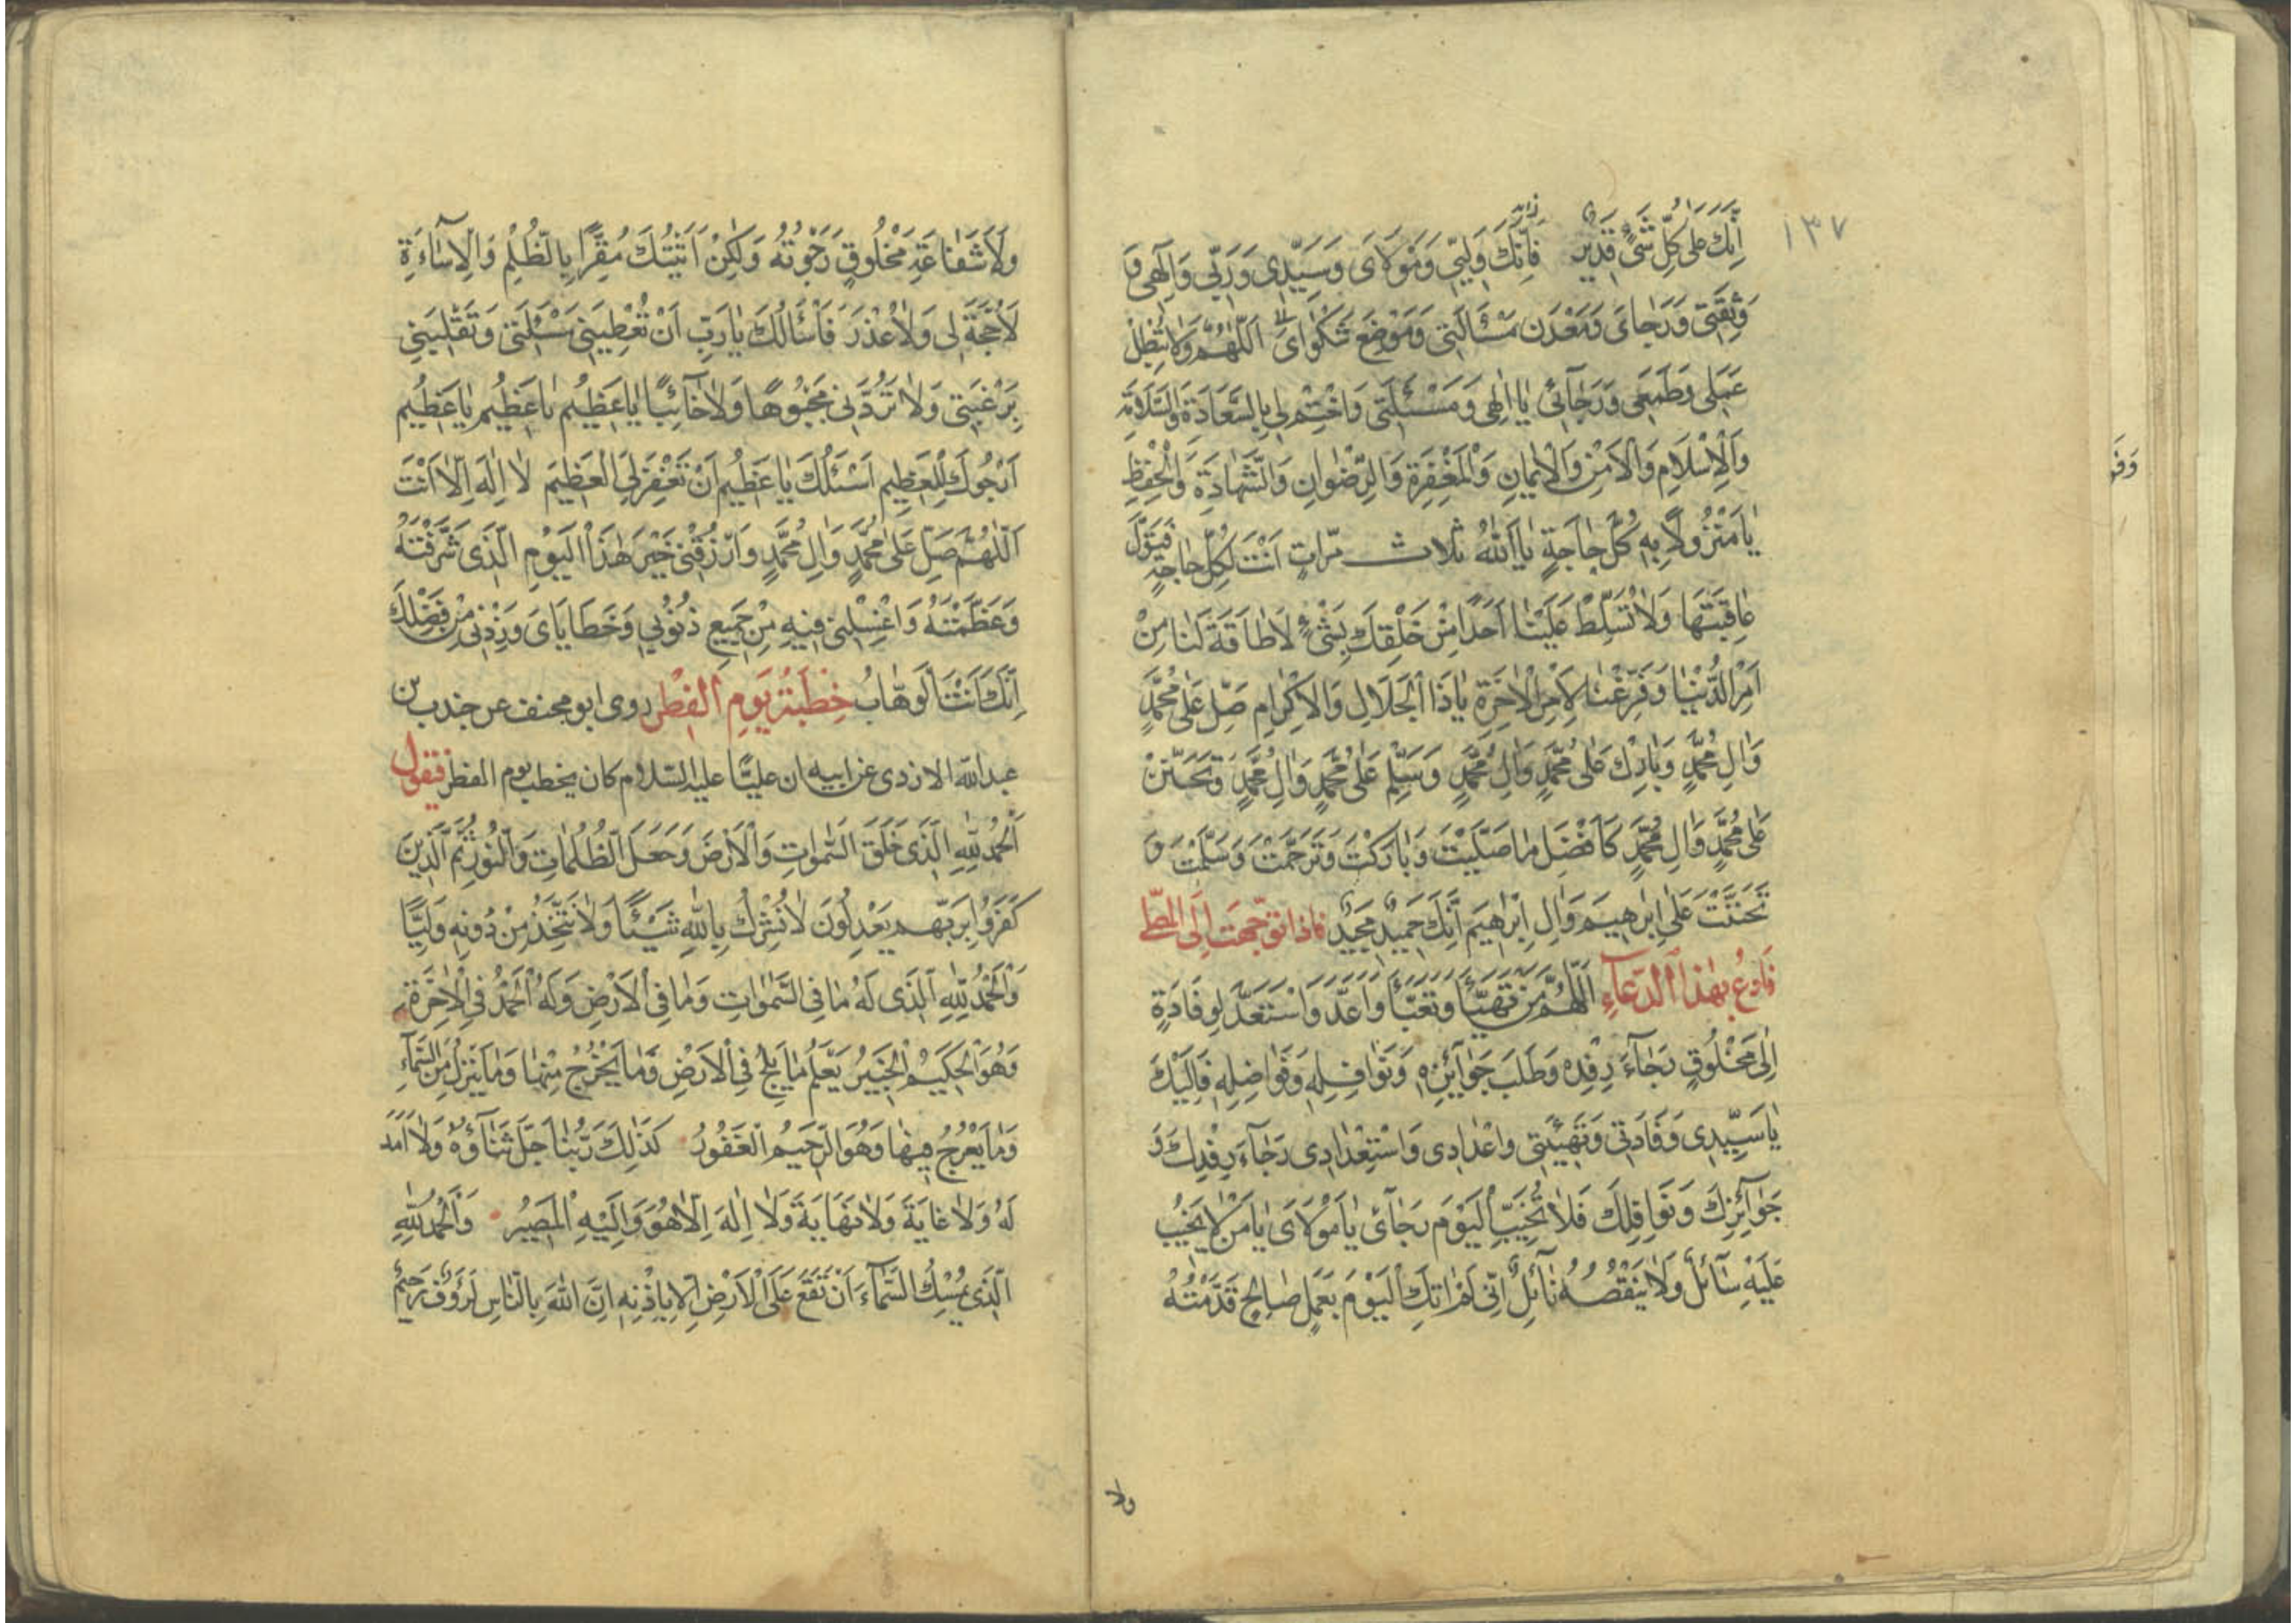 ١٣٧
اِنَّكَ عَلى كُلِّ شَىْءٍ قَديرٌ فَاِنَّكَ وَلِيّى وَمَوْلَاىَ وَسَيِّدِى وَرَبِّى وَاِلٰهِى وَ
وَثِقَتى وَرَجَاىَ وَمَعْدَن مَسْأَلَتِى وَمَوْضِعَ شَكْوَاىَ اَللّٰهُمَّ وَلَا تُبْطِلْ
عَمَلى وَطَمَعى وَرَجَآئى يٰا اِلٰهى وَمَسْئَلَتى وَاخْتِمْ لى بِالسَّعَادَةِ وَالسَّلَامَةِ
وَالْاِسْلَامِ وَالْاَمْنِ وَالْايمَانِ وَالْمَغْفِرَةِ وَالرِّضْوَانِ وَالشَّهَادَةِ وَالْحِفْظِ
يٰا مَنْزُولًا بِهِ كُلُّ حَاجَةٍ يٰا اَللّٰهُ ثلاث مرّات اَنْتَ لِكُلِّ حَاجَةٍ فَتَوَلَّ
عَاقِبَتَهَا وَلَا تُسَلِّطْ عَلَيْنَا اَحَدًا مِنْ خَلْقِكَ بِشَىْءٍ لَا طَاقَةَ لَنَا مِنْ
اَمْرِ الدُّنْيَا وَفَرِّغْنَا لِاَمْرِ الْاٰخِرَةِ يٰا ذَا الْجَلَالِ وَالْاِكْرَامِ صَلِّ عَلٰى مُحَمَّدٍ
وَاٰلِ مُحَمَّدٍ وَبَارِكْ عَلٰى مُحَمَّدٍ وَاٰلِ مُحَمَّدٍ وَسَلِّمْ عَلٰى مُحَمَّدٍ وَاٰلِ مُحَمَّدٍ وَتَحَنَّنْ
عَلٰى مُحَمَّدٍ وَاٰلِ مُحَمَّدٍ كَاَفْضَلِ مٰا صَلَّيْتَ وَبَارَكْتَ وَتَرَحَّمْتَ وَسَلَّمْتَ وَ
تَحَنَّنْتَ عَلٰى اِبْرٰهيمَ وَاٰلِ اِبْرٰهيمَ اِنَّكَ حَميدٌ مَجيدٌ فاذا توجّهت اِلَى المصلّى
فَادْعُ بِهٰذَا الدُّعَآءِ اَللّٰهُمَّ مَنْ تَهَيَّأَ وَتَعَبَّأَ وَاَعَدَّ وَاسْتَعَدَّ لِوِفَادَةٍ
اِلٰى مَخْلُوقٍ رَجَآءَ رِفْدِهِ وَطَلَبَ جَوَآئِزِهِ وَنَوَافِلِهِ وَفَوَاضِلِهِ فَاِلَيْكَ
يٰا سَيِّدِى وِفَادَتى وَتَهْيِئَتى وَاِعْدَادِى وَاسْتِعْدَادِى رَجَآءَ رِفْدِكَ وَ
جَوَآئِزِكَ وَنَوَافِلِكَ فَلَا تُخَيِّبِ الْيَوْمَ رَجَآئى يٰا مَوْلَاىَ يٰا مَنْ لَا يَخيبُ
عَلَيْهِ سَآئِلٌ وَلَا يَنْقُصُهُ نَآئِلٌ اِنّى لَمْ اٰتِكَ الْيَوْمَ بِعَمَلٍ صَالِحٍ قَدَّمْتُهُ
ولا
وَلَا شَفَاعَةِ مَخْلُوقٍ رَجَوْتُهُ وَلٰكِنْ اَتَيْتُكَ مُقِرًّا بِالظُّلْمِ وَالْاِسَآءَةِ
لَا حُجَّةَ لى وَلَا عُذْرَ فَاَسْأَلُكَ يٰا رَبِّ اَنْ تُعْطِيَنى مَسْئَلَتى وَتَقْلِبَنى
بِرَغْبَتى وَلَا تَرُدَّنى مَجْبُوهًا وَلَا خَآئِبًا يٰا عَظيمُ يٰا عَظيمُ يٰا عَظيمُ
اَرْجُوكَ لِلْعَظيمِ اَسْئَلُكَ يٰا عَظيمُ اَنْ تَغْفِرَ لِىَ الْعَظيمَ لَا اِلٰهَ اِلَّا اَنْتَ
اَللّٰهُمَّ صَلِّ عَلٰى مُحَمَّدٍ وَاٰلِ مُحَمَّدٍ وَارْزُقْنى خَيْرَ هٰذَا الْيَوْمِ الَّذى شَرَّفْتَهُ
وَعَظَّمْتَهُ وَاغْسِلْنى فيهِ مِنْ جَميعِ ذُنُوبى وَخَطَايَاىَ وَزِدْنى مِنْ فَضْلِكَ
اِنَّكَ اَنْتَ الْوَهَّابُ خُطْبَةُ يَوْمِ الْفِطْرِ روى ابو مخنف عن جندب بن
عبد الله الازدى عن ابيه ان عليًّا عليه السّلام كان يخطب يوم الفطر فيقول
اَلْحَمْدُ لِلّٰهِ الَّذى خَلَقَ السَّمٰوَاتِ وَالْاَرْضَ وَجَعَلَ الظُّلُمَاتِ وَالنُّورَ ثُمَّ الَّذينَ
كَفَرُوا بِرَبِّهِمْ يَعْدِلُونَ لَا نُشْرِكُ بِاللّٰهِ شَيْئًا وَلَا نَتَّخِذُ مِنْ دُونِهِ وَلِيًّا
وَالْحَمْدُ لِلّٰهِ الَّذى لَهُ مٰا فِى السَّمٰوَاتِ وَمٰا فِى الْاَرْضِ وَلَهُ الْحَمْدُ فِى الْاٰخِرَةِ
وَهُوَ الْحَكيمُ الْخَبيرُ يَعْلَمُ مٰا يَلِجُ فِى الْاَرْضِ وَمٰا يَخْرُجُ مِنْهَا وَمٰا يَنْزِلُ مِنَ السَّمَآءِ
وَمٰا يَعْرُجُ فيهَا وَهُوَ الرَّحيمُ الْغَفُورُ كَذٰلِكَ رَبُّنَا جَلَّ ثَنَآؤُهُ وَلَا اَمَدَ
لَهُ وَلَا غَايَةَ وَلَا نِهَايَةَ وَلَا اِلٰهَ اِلَّا هُوَ وَاِلَيْهِ الْمَصيرُ وَالْحَمْدُ لِلّٰهِ
الَّذى يُمْسِكُ السَّمَآءَ اَنْ تَقَعَ عَلَى الْاَرْضِ اِلَّا بِاِذْنِهِ اِنَّ اللّٰهَ بِالنَّاسِ لَرَؤُفٌ رَحيمٌ